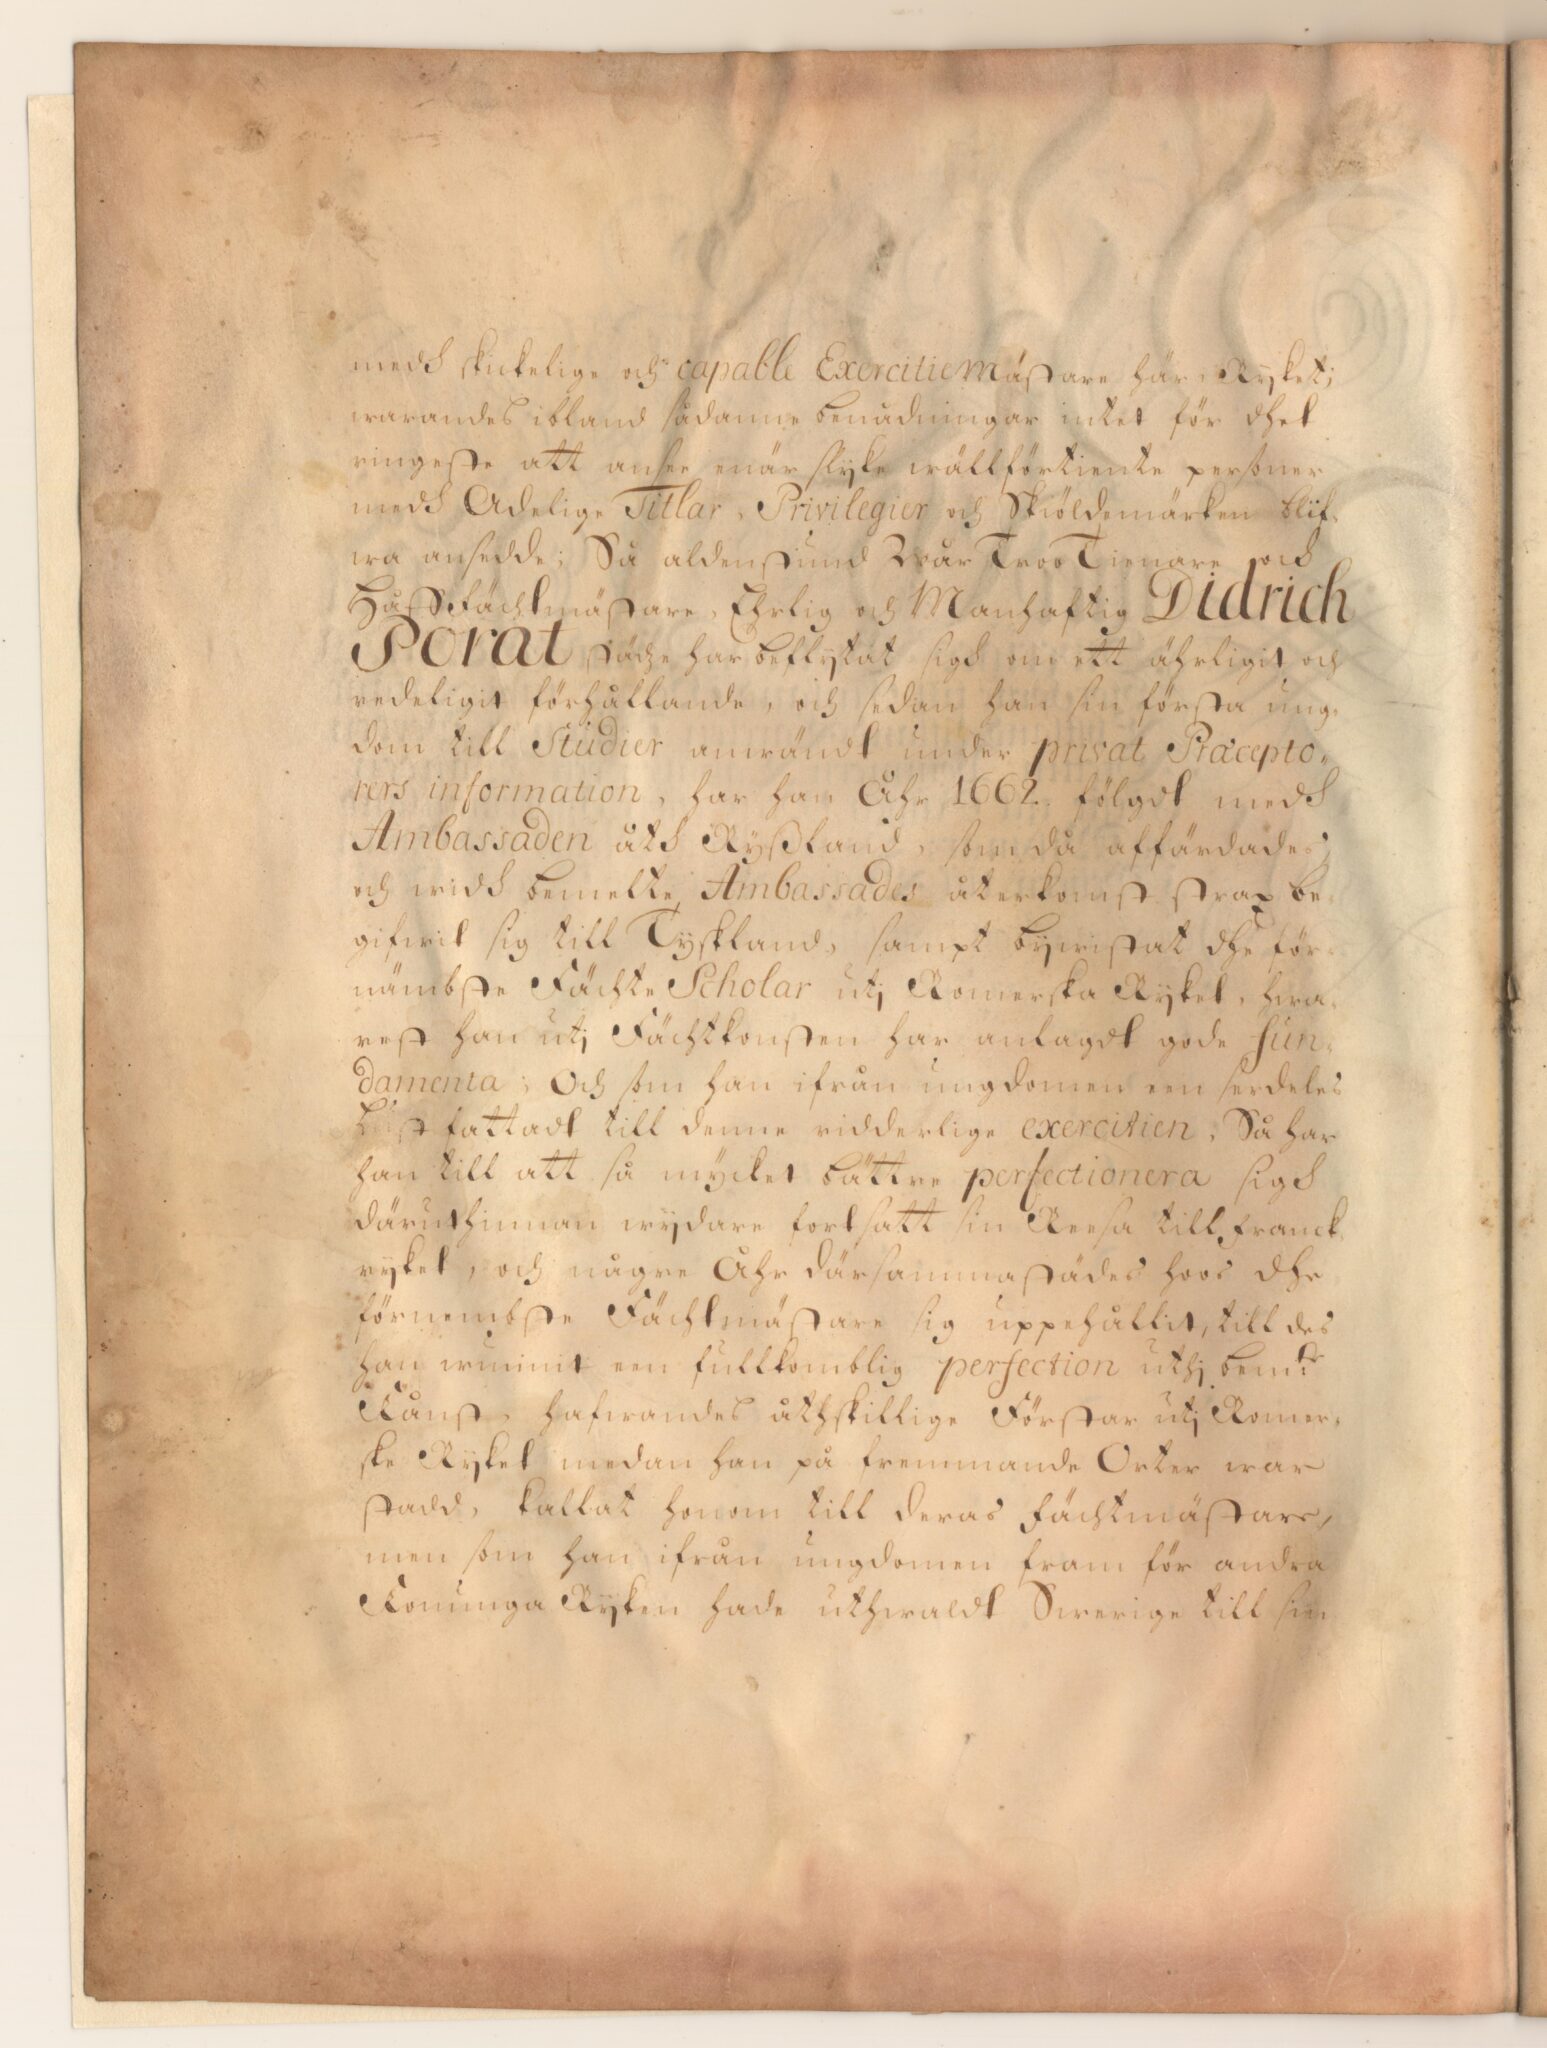 medh skickelige och capable Exercitiemästare här i Rijket;
warandes ibland sådanne benådningar intet för dhet
ringeste att ansee enär slijke wällförtiente personer
medh Adelige Titlar, Privilegier och Skiöldemärken blif-
wa ansedde; Så aldenstund Wår Troo Tienare och
Hoff Fächtmästare, Ehrlig och Manhaftig Didrich
Porat städze har beflijtat sigh om ett ährligit och
redeligit förhållande, och sedan han sin första ung-
dom till Studier anwändt under privat Præcepto-
rers information, har han Åhr 1662. fölgdt medh
Ambassaden åth Rÿßland, som då affärdades,
och widh bemelte Ambassades återkomst strax be-
gifwit sig till Tyskland, sampt bijwistat dhe för-
nämbste Fächte Scholar utj Romerska Rijket, hwa-
rest han utj Fächtkonsten har anlagdt gode fun-
damenta; Och som han ifrån ungdomen een serdeles
Lust fattadt till denne ridderlige exercitien, Så har
han till att så mÿcket bättre perfectionera sigh
däruthinnan wijdare fortsatt sin Reesa till Franck-
rijket, och någre Åhr därsammastädes hoos dhe
förnembste Fächtmästare sig uppehållit, till des
han wunnit een fullkomblig perfection uthj bemte
Konst, hafwandes åthskillige Förstar utj Romer-
ske Rijket medan han på fremmande Orter war
stadd, kallat honom till deras Fächtmästare,
men som han ifrån ungdomen fram för andra
Konunga Rijken hade uthwaldt Swerige till sin